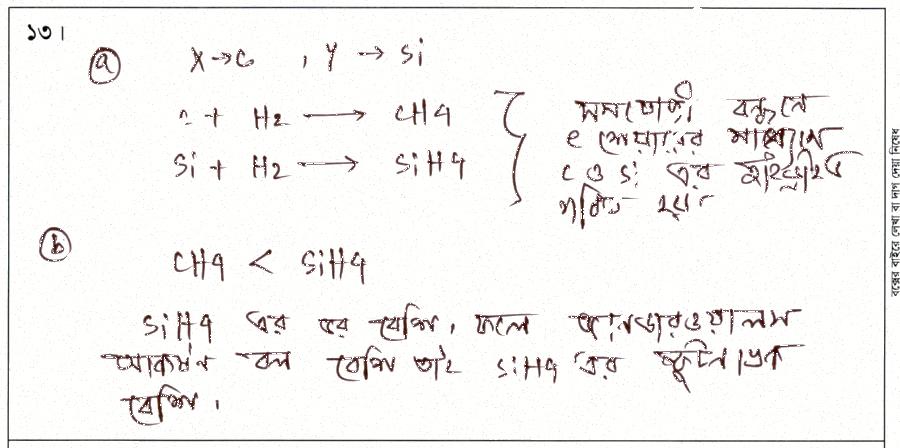 ১৩।
ⓐ X → C , Y → Si
C + H2 → CH4
Si + H2 → SiH4
সমযোজী বন্ধনে
e শেয়ারের মাধ্যমে
C ও Si এর হাইড্রাইড
গঠিত হয়।
ⓑ
CH4 < SiH4
SiH4 এর ভর বেশি, ফলে ভ্যানডারওয়ালস
আকর্ষন বল বেশি তাই SiH4 এর স্ফুটনাংক
বেশি।
বক্সের বাইরে লেখা বা দাগ দেয়া নিষেধ